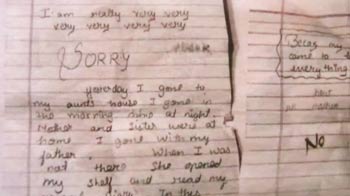 I am really very very
very very very very
SORRY
yesterday I gone to
my aunts house I gone in
the morning come at night.
Mother and Sister were at
home I gone with my
father. When I was
not there she opened
my shelf and read my
In this
Becaz my
came to
everything
NO